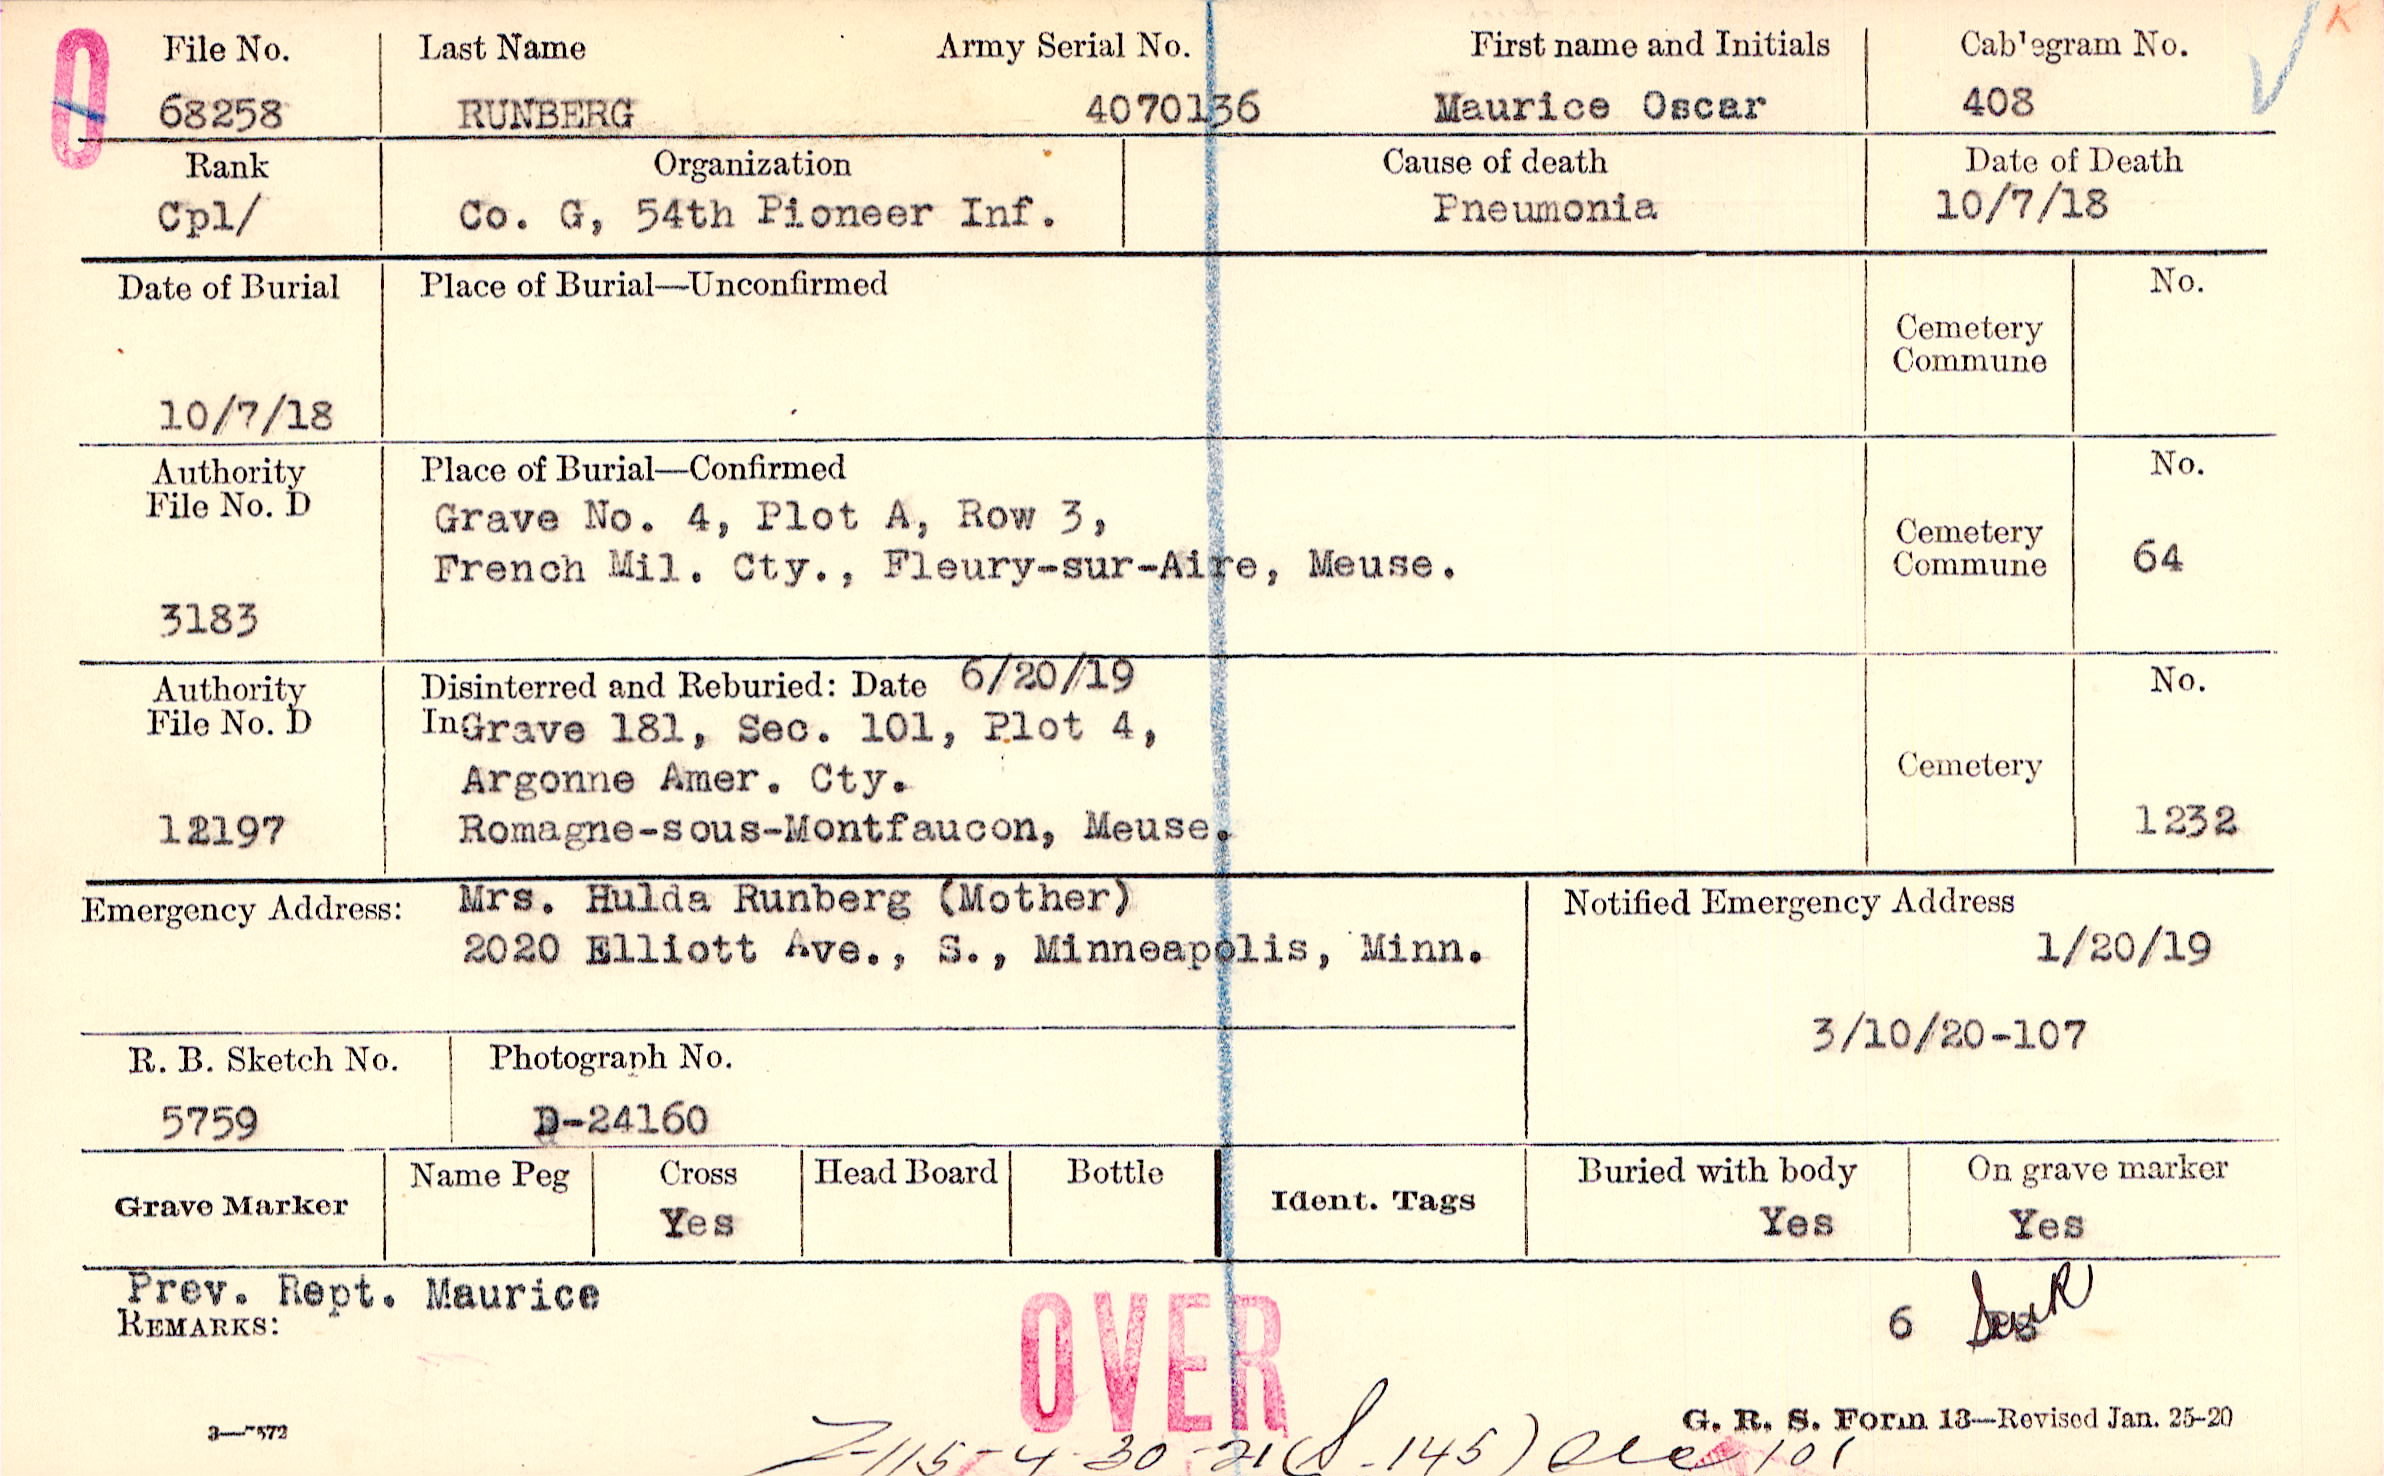 O
File No. Last Name Army Serial No. First name and Initials Cablegram No. K
68258 RUNBERG 4070136 Maurice Oscar 408
Rank Organization Cause of death Date of Death
Cpl/ Co. G, 54th Pioneer Inf. Pneumonia 10/7/18
Date of Burial Place of Burial—Unconfirmed No.
Cemetery
Commune
10/7/18
Authority Place of Burial—Confirmed No.
File No. D
Grave No. 4, Plot A, Row 3,
French Mil. Cty., Fleury-sur-Aire, Meuse.
Cemetery
Commune 64
3183
Authority Disinterred and Reburied: Date 6/20/19 No.
File No. D In Grave 181, Sec. 101, Plot 4,
Argonne Amer. Cty. Cemetery
12197 Romagne-sous-Montfaucon, Meuse. 1232
Emergency Address: Mrs. Hulda Runberg (Mother) Notified Emergency Address
2020 Elliott Ave., S., Minneapolis, Minn. 1/20/19
3/10/20-107
R. B. Sketch No. Photograph No.
5759 D-24160
Grave Marker Name Peg Cross Head Board Bottle Ident. Tags Buried with body On grave marker
Yes Yes Yes
Prev. Rept. Maurice
REMARKS: 6
OVER
G. R. S. Form 13—Revised Jan. 25-20
3—7572
Z-115-4-30-21 (S-145) 101